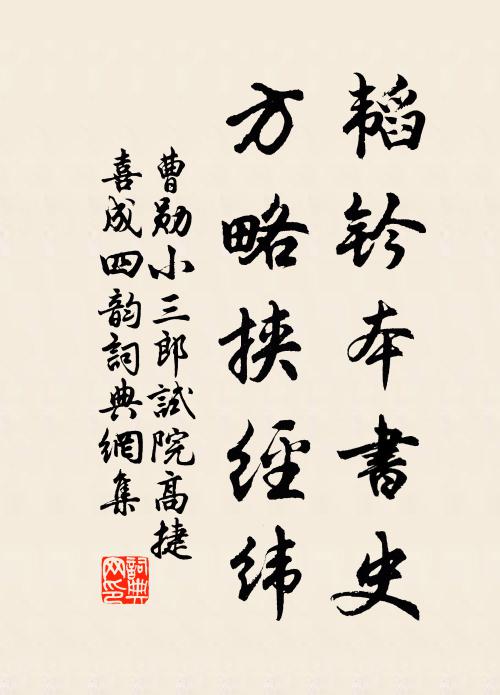 韜鈐本書史
方略挟經纬
曹勋小三郎試院高捷
喜成四韵詞典網集
詞典网印